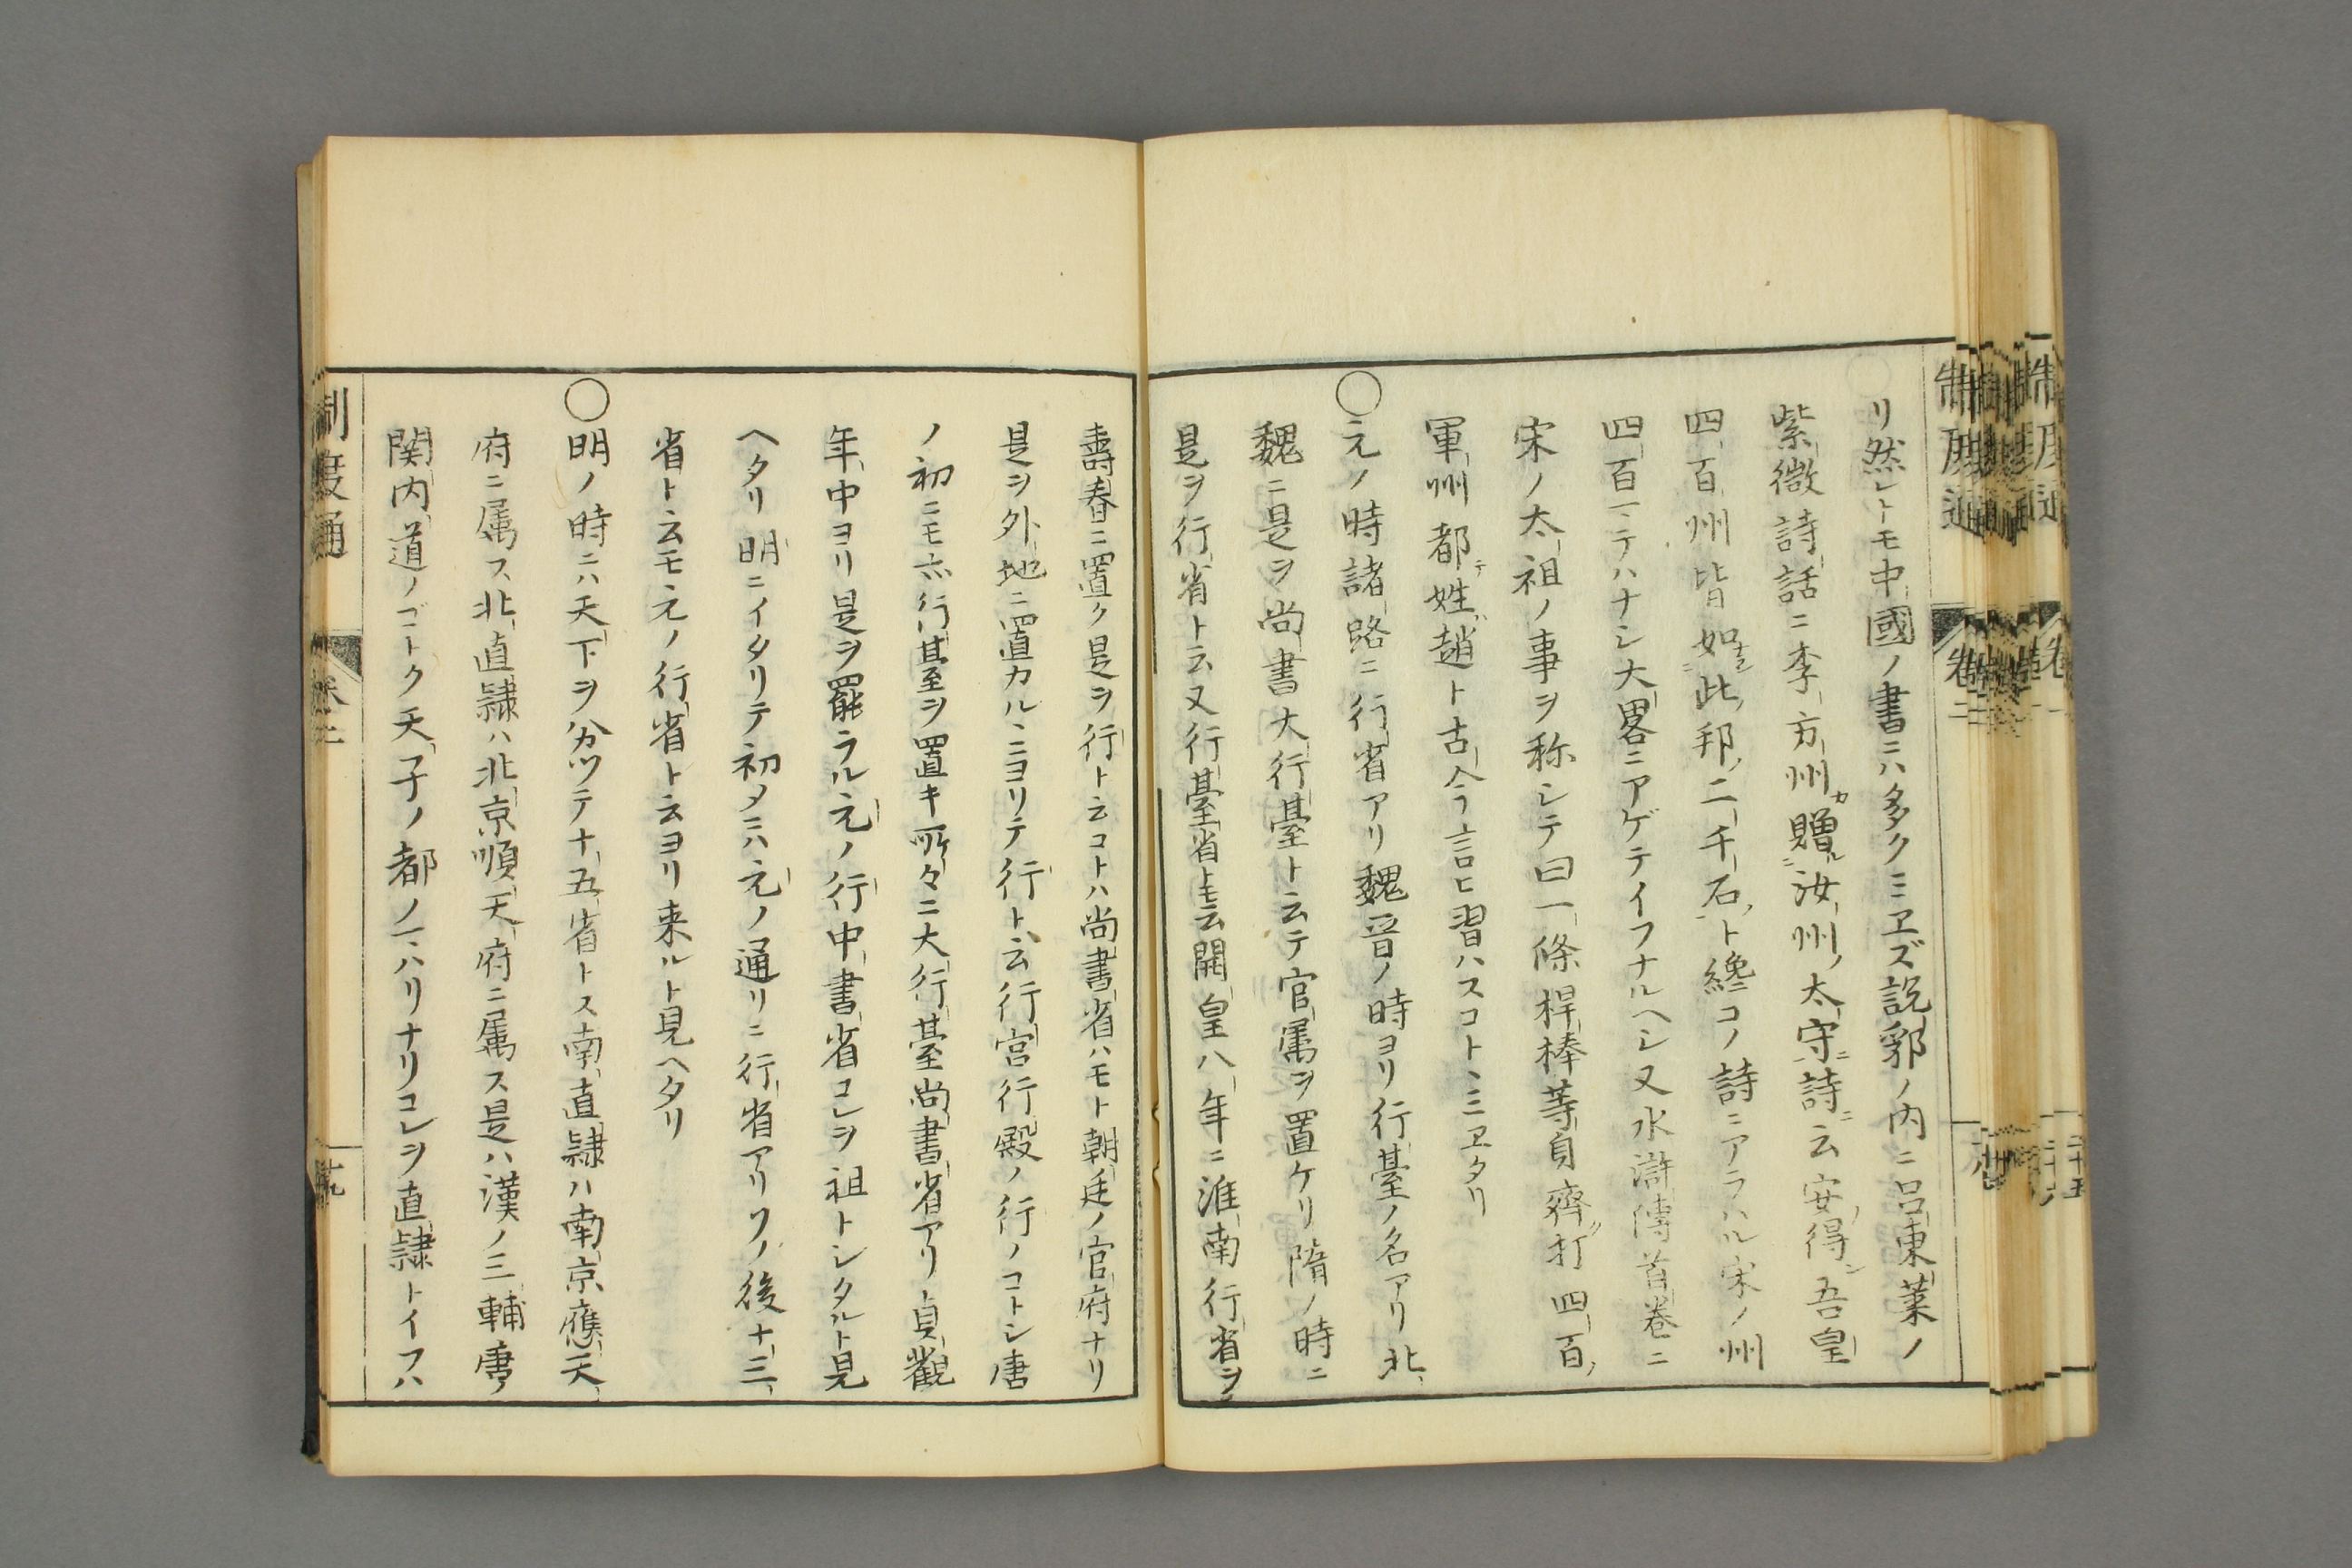 リ然レトモ中國ノ書ニハ多クミヱズ説郛ノ内ニ呂東莱ノ
紫微詩話ニ李方州カ贈ル汝州ノ太守ニ詩ニ云安得ン吾皇
四百州皆如ナル此邦ノ二千石ト纔コノ詩ニアラハル宋ノ州
四百ニテハナシ大畧ニアゲテイフナルヘシ又水滸傳首卷ニ
宋ノ太祖ノ事ヲ称シテ曰一條桿棒等身齊打四百
軍州都テ姓趙ト古今言ヒ習ハスコトヽミヱタリ
〇元ノ時諸路ニ行省アリ魏晋ノ時ヨリ行臺ノ名アリ北
魏ニ是ヲ尚書大行臺ト云テ官属ヲ置ケリ隋ノ時ニ
是ヲ行省ト云又行臺省トモ云開皇八年ニ淮南行省ヲ
壽春ニ置ク是ヲ行ト云コトハ尚書省ハモト朝廷ノ官府ナリ
是ヲ外地ニ置カルヽニヨリテ行ト云行宮行殿ノ行ノコトシ唐
ノ初ニモ亦行臺ヲ置キ所々ニ大行臺尚書省アリ貞觀
年中ヨリ是ヲ罷ラル元ノ行中書省コレヲ祖トシタルト見
ヘタリ明ニイタリテ初メニハ元ノ通リニ行省アリソノ後十三
省ト云モ元ノ行省ト云ヨリ来ルト見ヘタリ
〇明ノ時ニハ天下ヲ分ツテ十五省トス南直隷ハ南京應天
府ニ属ス北直隷ハ北京順天府ニ属ス是ハ漢ノ三輔唐ノ
関内道ノゴトク天子ノ都ノマハリナリコレヲ直隷トイフハ
制度通 卷二